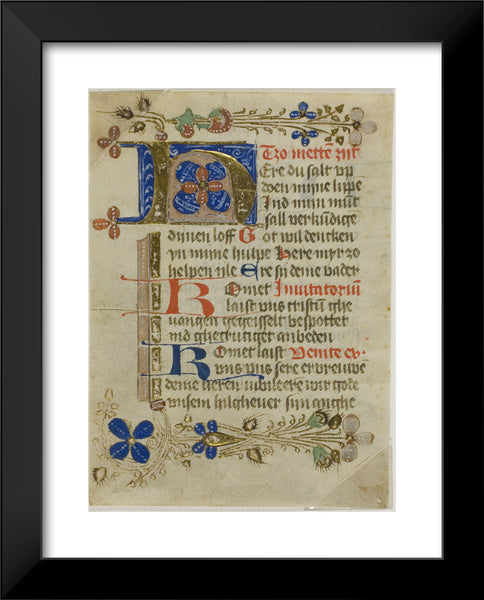 Tzo mettē zijt
Here du salt vp
doen mijne lippe
Ind mijn mūt
sall verkūdige
dijnen loff Got wil dencken
yn mijne hulpe here myr zo
helpen ile Ere si deme vader
Komet Inuitatoriū
laist vns cristū ghe
uangen gegeisselt bespottet
ind ghecrutziget anbeden
Komet laist Venite ex
vns vns sere ervreuwē
deme heren iubileere wir gode
vnsem heilgheuer sijn anghe